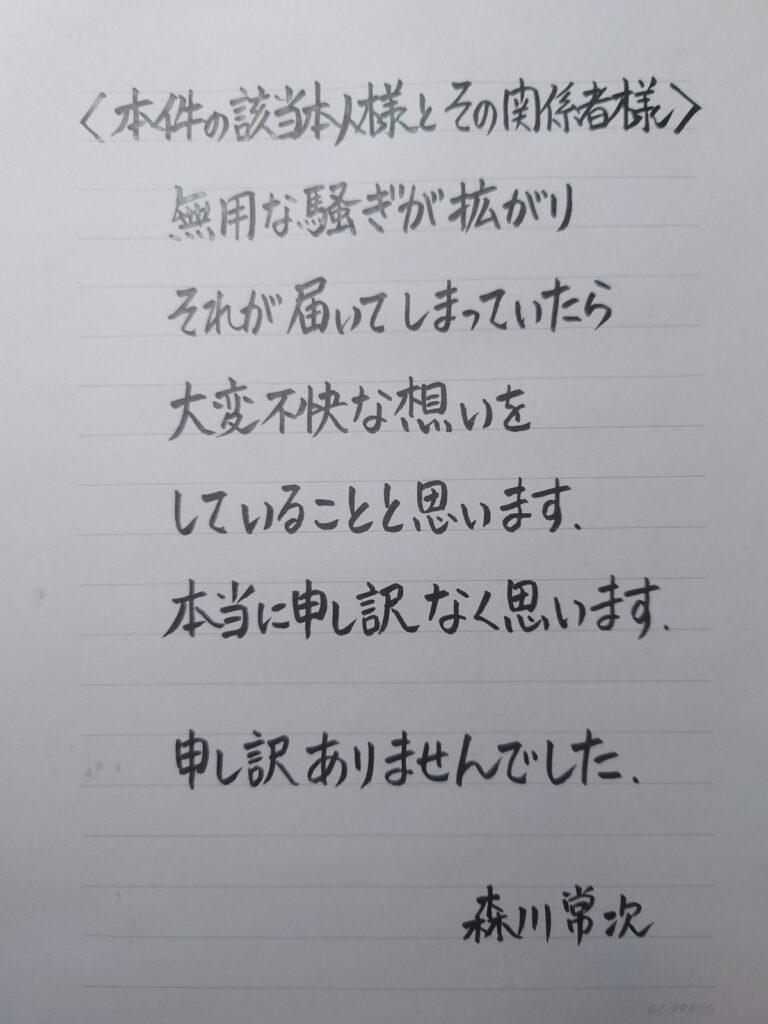 〈本件の該当本人様とその関係者様〉
無用な騒ぎが拡がり
それが届いてしまっていたら
大変不快な想いを
していることと思います.
本当に申し訳なく思います.
申し訳ありませんでした.
森川常次
QC PRESS